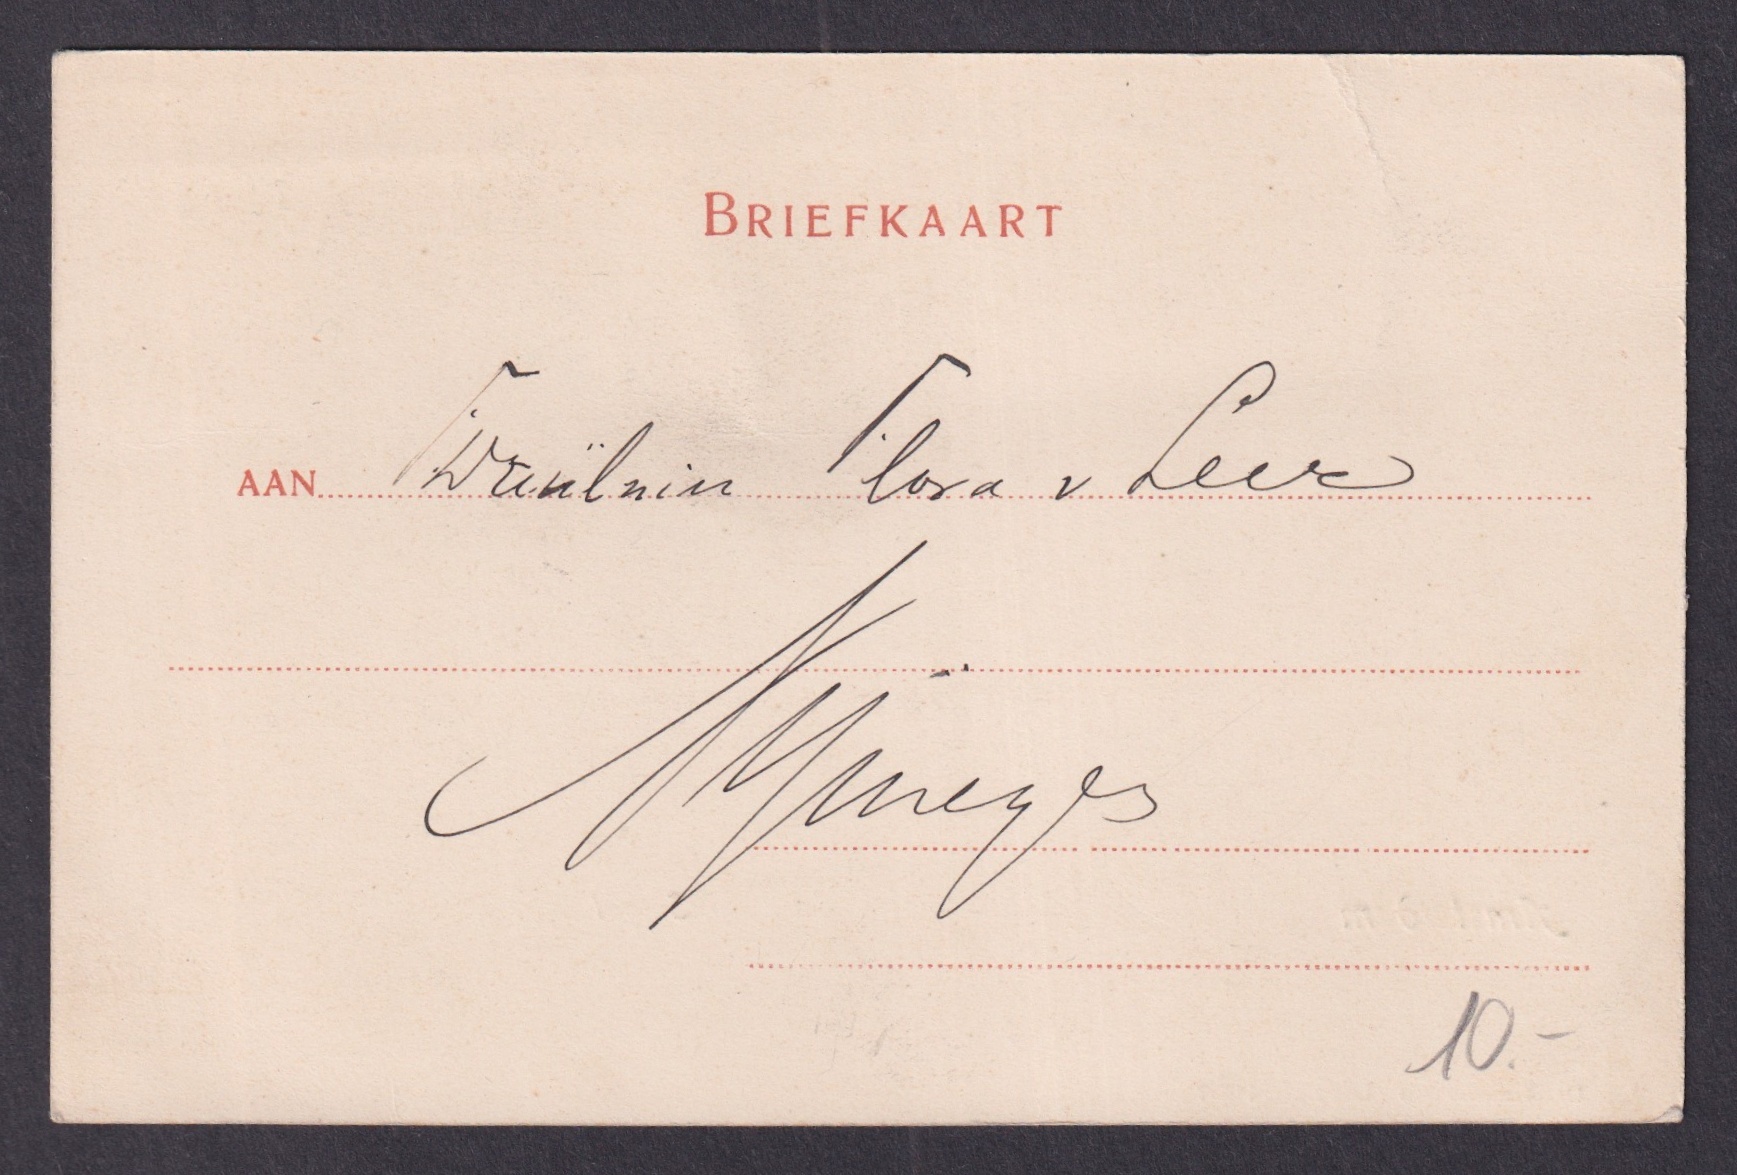 BRIEFKAART
AAN Fräulein Flora v Leer
Nymegen
10.-